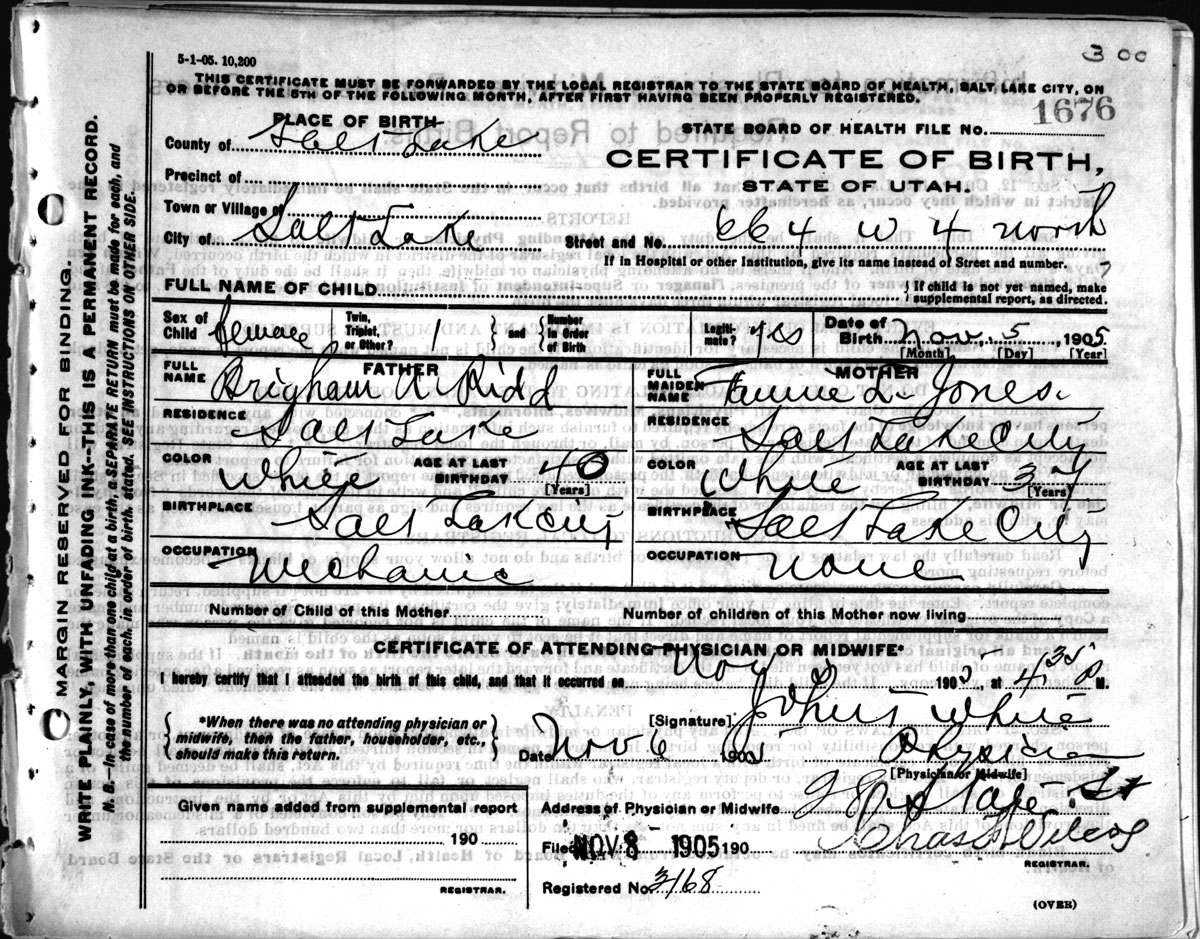 3 00
5-1-05. 10,200
THIS CERTIFICATE MUST BE FORWARDED BY THE LOCAL REGISTRAR TO THE STATE BOARD OF HEALTH, SALT LAKE CITY, ON
OR BEFORE THE 5TH OF THE FOLLOWING MONTH, AFTER FIRST HAVING BEEN PROPERLY REGISTERED.
1676
PLACE OF BIRTH
STATE BOARD OF HEALTH FILE NO.
County of Salt Lake
CERTIFICATE OF BIRTH,
STATE OF UTAH.
Precinct of
Town or Village of
City of Salt Lake
Street and No. 664 W 4 North
If in Hospital or other Institution, give its name instead of Street and number.
FULL NAME OF CHILD
{ If child is not yet named, make
supplemental report, as directed.
Sex of Child female
Twin, Triplet, or Other? 1
{ and { Number in Order of Birth
Legiti- mate? yes
Date of Birth Nov. 5, 1905
[Month] [Day] [Year]
FATHER
FULL NAME Brigham A Ridd
MOTHER
FULL MAIDEN NAME L. Jones
RESIDENCE Salt Lake
RESIDENCE Salt Lake City
COLOR White AGE AT LAST BIRTHDAY 40 [Years]
COLOR White AGE AT LAST BIRTHDAY 37 [Years]
BIRTHPLACE Salt Lake City
BIRTHPLACE Salt Lake City
OCCUPATION Mechanic
OCCUPATION None
Number of Child of this Mother
Number of children of this Mother now living
CERTIFICATE OF ATTENDING PHYSICIAN OR MIDWIFE*
I hereby certify that I attended the birth of this child, and that it occurred on Nov 5 1905, at 4:35 M.
{ *When there was no attending physician or
midwife, then the father, householder, etc.,
should make this return. }
[Signature] White
Date Nov 6 1905
Physician
[Physician or Midwife]
Given name added from supplemental report
190
REGISTRAR.
Address of Physician or Midwife St
Filed NOV 8 1905 190
Chas Wilcox
REGISTRAR.
Registered No. 3168
(OVER)
MARGIN RESERVED FOR BINDING.
WRITE PLAINLY, WITH UNFADING INK--THIS IS A PERMANENT RECORD.
N. B.--In case of more than one child at a birth, a SEPARATE RETURN must be made for each, and
the number of each, in order of birth, stated. SEE INSTRUCTIONS ON OTHER SIDE.